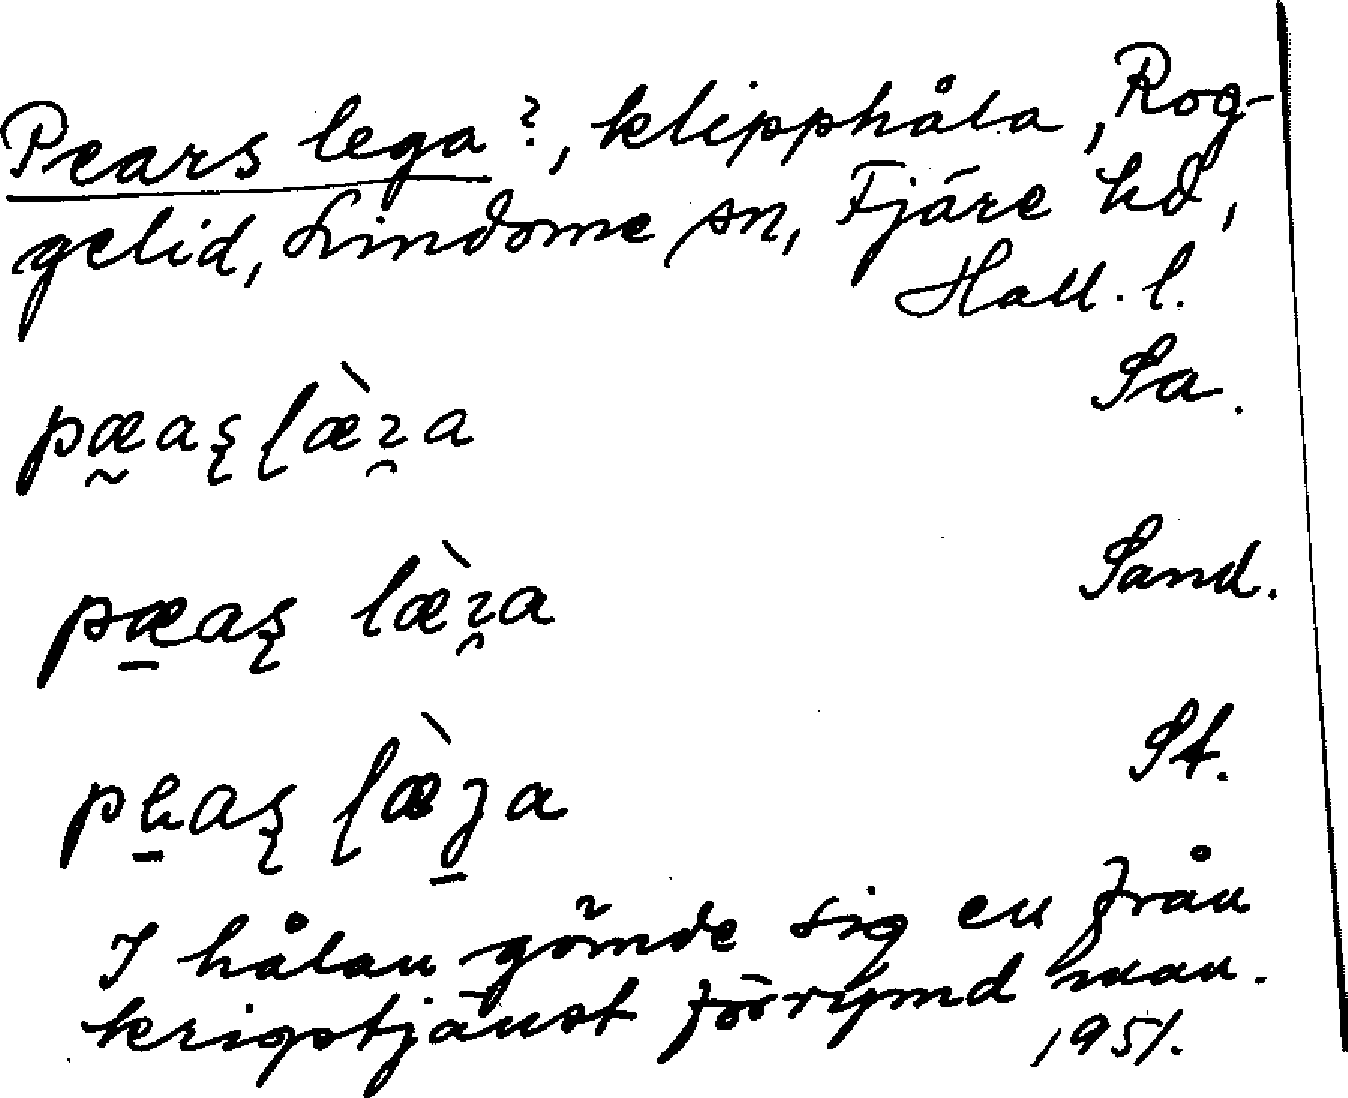 Pears lega?, klipphåla, Rog-
gelid, Lindome sn, Fjäre hd,
Hall. l.
pæ̰aʂ ɭæ̀ɀ̯a Sa.
pæ̠aʂ læ̀ɀ̯a Sand.
pɛ̠aʂ ɭæ̀ʒ̠a St.
I hålan gömde sig en från
krigstjänst förrymd man.
1951.